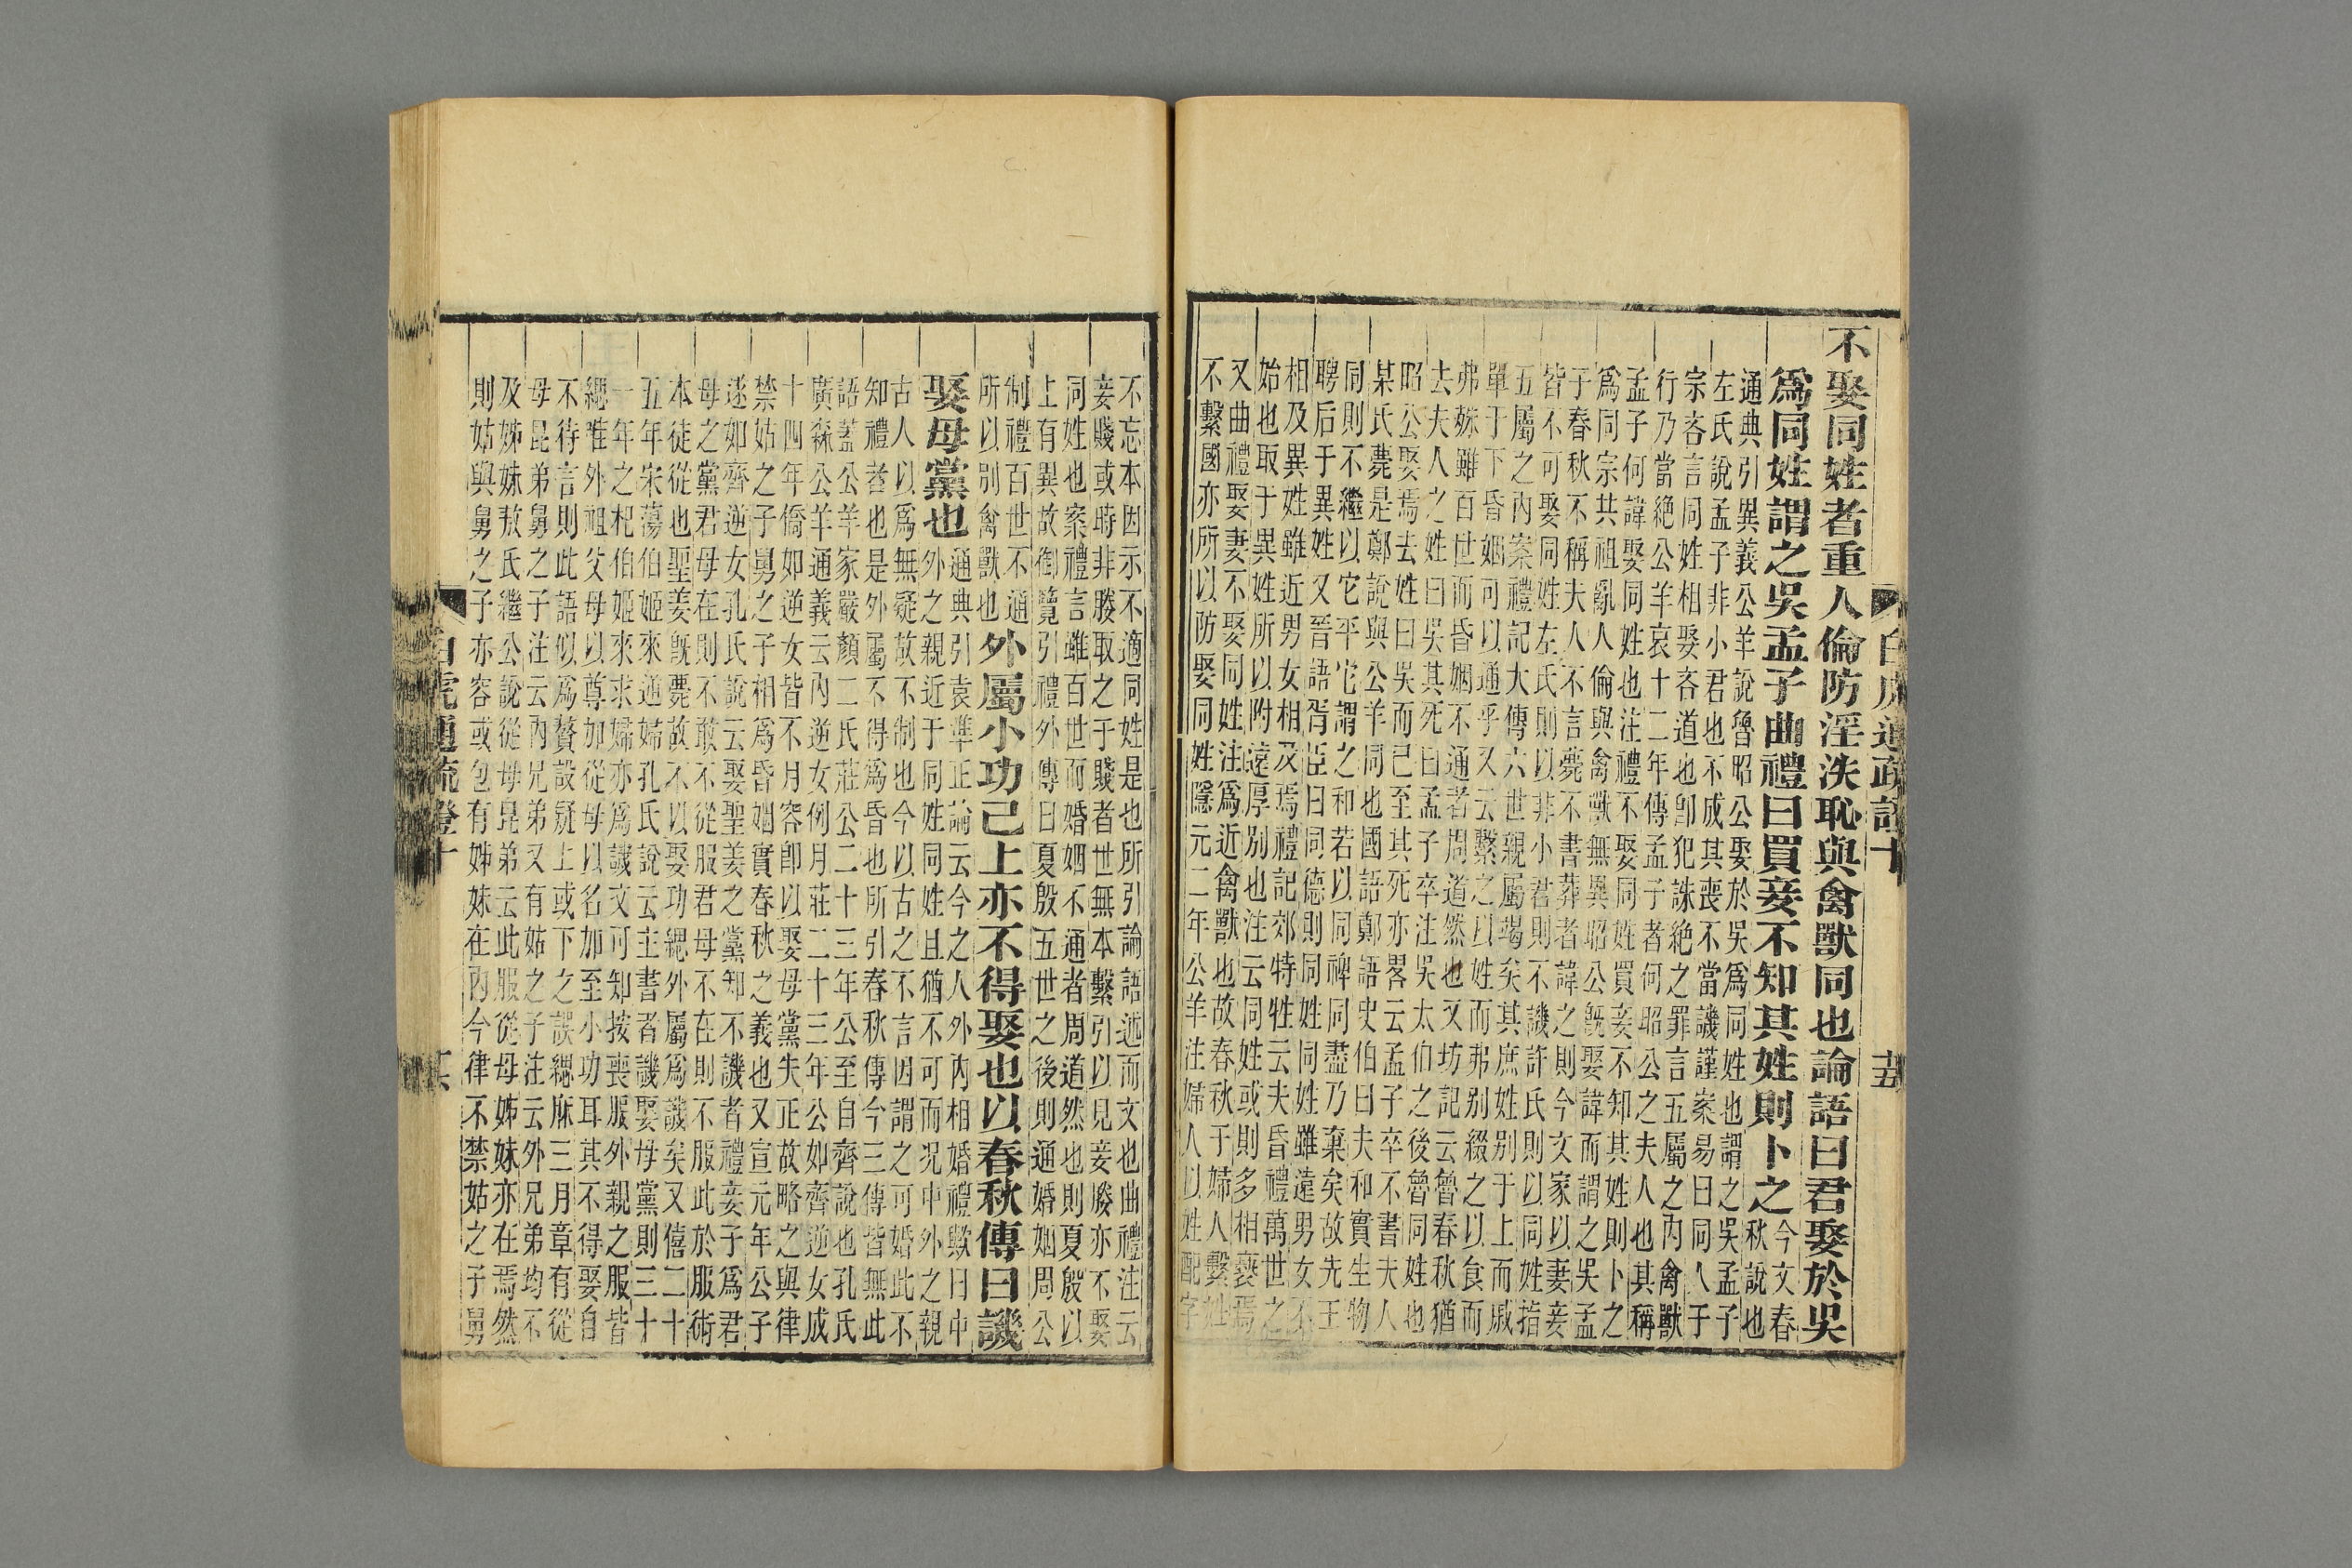 白虎通疏證十
十五
不娶同姓者重人倫防淫泆恥與禽獸同也論語曰君娶於吳
爲同姓謂之吳孟子曲禮曰買妾不知其姓則卜之
今文春
秋說也
通典引異義公羊說魯昭公娶於吳爲同姓也謂之吳孟子
左氏說孟子非小君也不成其喪不當譏謹案易曰同人于
宗吝言同姓相娶吝道也卽犯誅絶之罪言五屬之內禽獸
行乃當絶公羊哀十二年傳孟子者何昭公之夫人也其稱
孟子何諱娶同姓也注禮不娶同姓買妾不知其姓則卜之
爲同宗共祖亂人倫與禽獸無異昭公旣娶諱而謂之吳孟
子春秋不稱夫人不言薨不書葬者諱之則今文家以妻妾
皆不可娶同姓左氏則以非小君則不譏許氏則以同姓指
五屬之內案禮記大傳六世親屬竭矣其庶姓别于上而戚
單于下昏姻可以通乎又云繫之以姓而弗别綴之以食而
弗姝雖百世而昏姻不通者周道然也又坊記云魯春秋猶
去夫人之姓曰吳其死曰孟子卒注吳太伯之後魯同姓也
昭公娶焉去姓曰吳而已至其死亦畧云孟子卒不書夫人
某氏薨是鄭說與公羊同也國語鄭語史伯曰夫和實生物
同則不繼以它平它謂之和若以同裨同盡乃棄矣故先王
聘后于異姓又晉語胥臣曰同德則同姓同姓雖遠男女不
相及異姓雖近男女相及焉禮記郊特牲云夫昏禮萬世之
始也取于異姓所以附遠厚别也注云同姓或則多相褻焉
又曲禮娶妻不娶同姓注爲近禽獸也故春秋于婦人繫姓
不繫國亦所以防娶同姓隱元二年公羊注婦人以姓配字
不忘本因示不適同姓是也所引論語述而文也曲禮注云
妾賤或時非媵取之于賤者世無本繫引以見妾媵亦不娶
同姓也案禮言雖百世而婚姻不通者周道然也則夏殷以
上有異故御覽引禮外傳曰夏殷五世之後則通婚姻周公
制禮百世不通
所以别禽獸也
外屬小功已上亦不得娶也以春秋傳曰譏
娶母黨也
通典引袁準正論云今之人外內相婚禮歟曰中
外之親近于同姓同姓且猶不可而況中外之親
古人以爲無疑故不制也今以古之不言因謂之可婚此不
知禮者也是外屬不得爲昏也所引春秋傳今三傳皆無此
語蓋公羊家嚴顏二氏莊公二十三年公至自齊說也孔氏
廣森公羊通義云內逆女例月莊二十三年公如齊逆女成
十四年僑如逆女皆不月容卽以娶母黨失正故略之與律
禁姑之子舅之子相爲昏姻實春秋之義也又宣元年公子
遂如齊逆女孔氏說云娶聖姜之黨知不譏者禮妾子爲君
母之黨君母在則不敢不從服君母不在則不服此於服術
本徒從也聖姜旣薨故不以娶功緦外屬爲譏矣又僖二十
五年宋蕩伯姬來逆婦孔氏說云主書者譏娶母黨則三十
一年之杞伯姬來求婦亦爲譏文可知按喪服外親之服皆
緦惟外祖父母以尊加從母以名加至小功耳其不得娶自
不待言則此語似爲贅設疑上或下之誤緦麻三月章有從
母昆弟舅之子注云內兄弟又有姑之子注云外兄弟均不
及姊妹敖氏繼公說從母昆弟云此服從母姊妹亦在焉然
則姑與舅之子亦容或包有姊妹在內今律不禁姑之子舅
白虎通疏證十